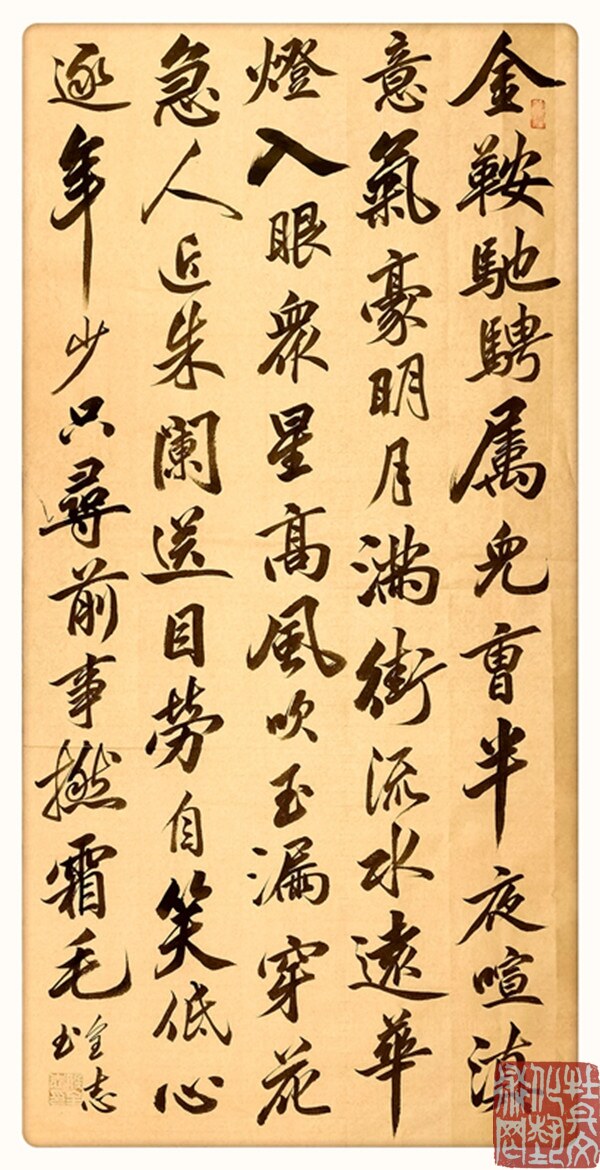 金鞍馳騁属兒曹半夜喧滇
意氣豪明月滿街流水遠華
燈入眼眾星高風吹玉漏穿花
急人近朱闌送目勞自笑低心
逐年少只尋前事撚霜毛
金志
书